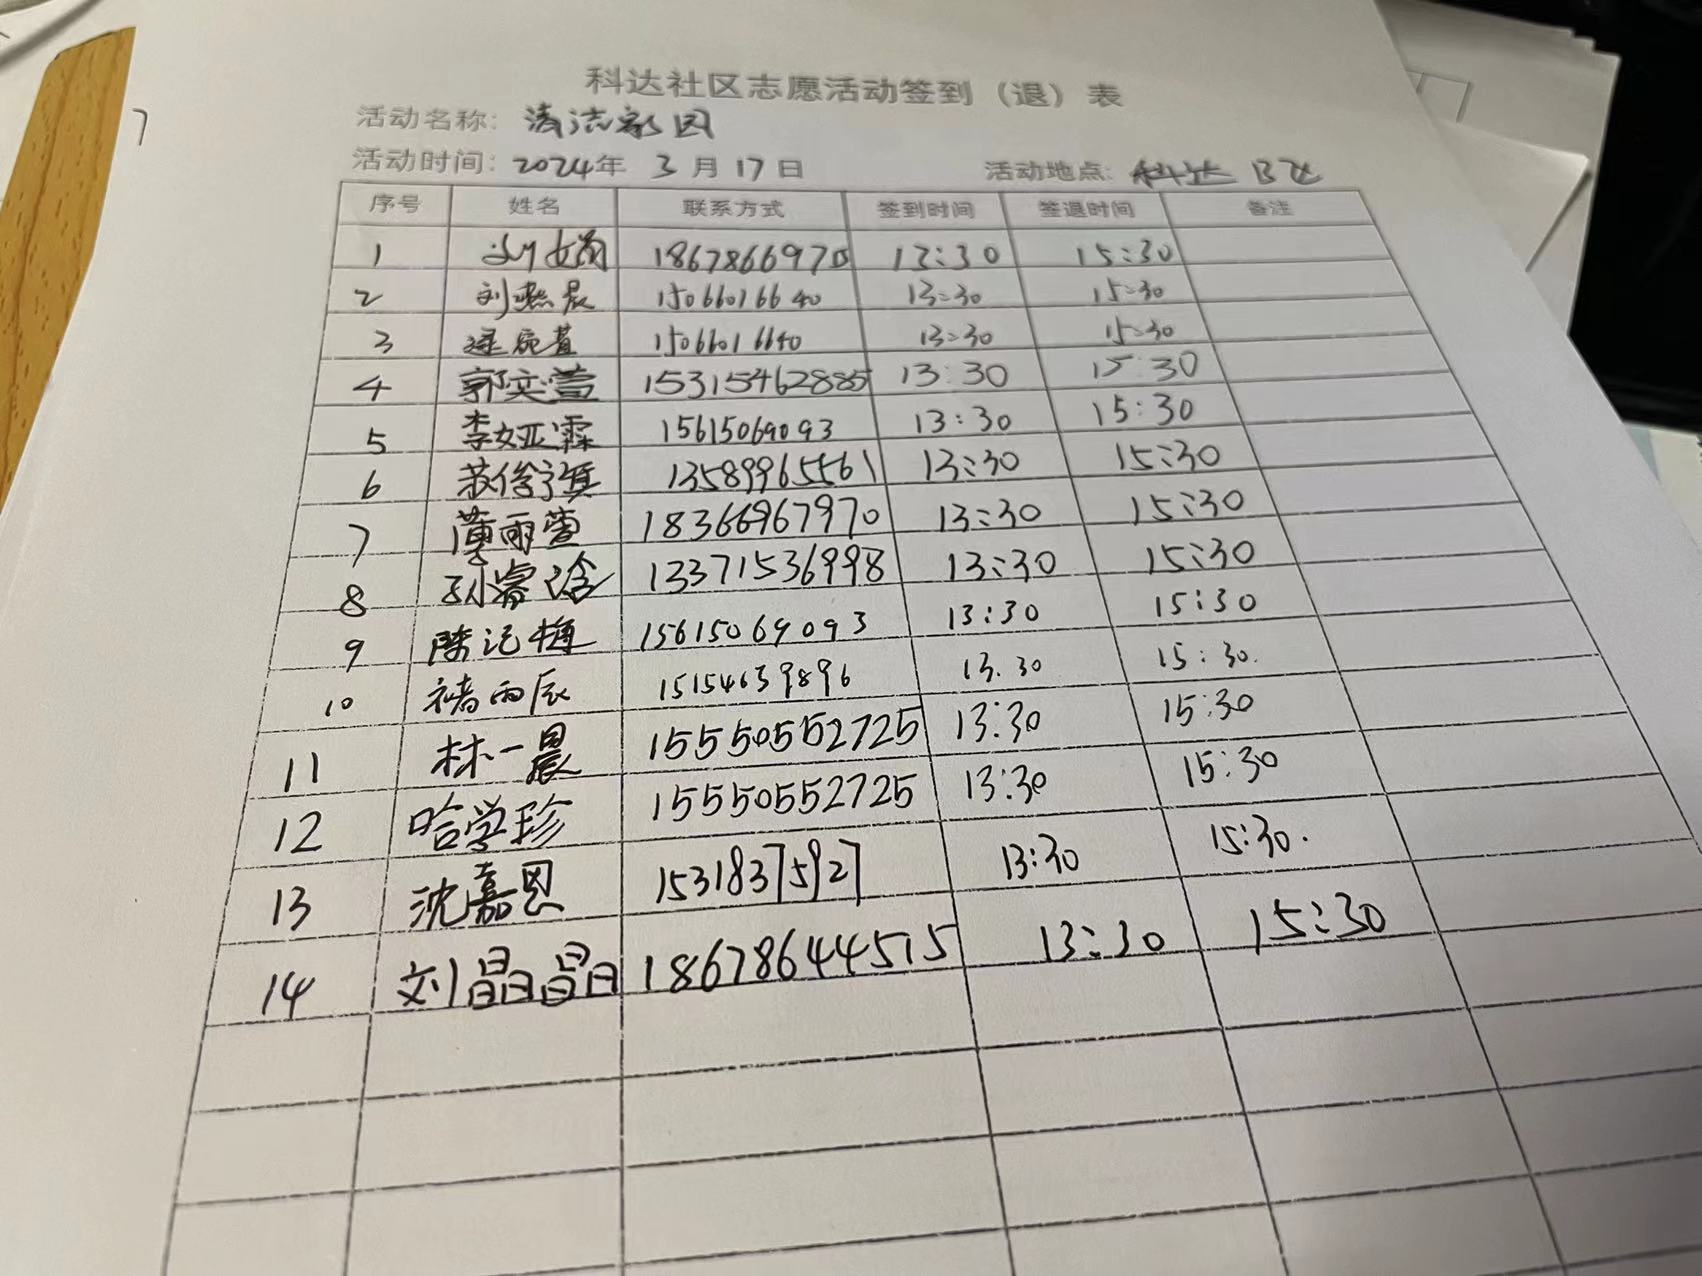 科达社区志愿活动签到（退）表
活动名称：清洁家园
活动时间：2024年 3月17日 活动地点：科达B区
序号 姓名 联系方式 签到时间 签退时间 备注
1 刘女娟 13:30 15:30
2 15066016640 13:30 15:30
3 15066016640 13:30 15:30
4 郭奕萱 15315462885 13:30 15:30
5 李娅霖 15615069093 13:30 15:30
6 苏俊祺 13589965561 13:30 15:30
7 薄雨萱 18366967970 13:30 15:30
8 孙睿晗 13371536998 13:30 15:30
9 陈记梅 15615069093 13:30 15:30
10 褚雨辰 15154639896 13.30 15:30.
11 林一晨 15550552725 13:30 15:30
12 哈学珍 15550552725 13:30 15:30
13 沈嘉恩 15318375927 13:30 15:30.
14 刘晶晶 18678644515 13:30 15:30